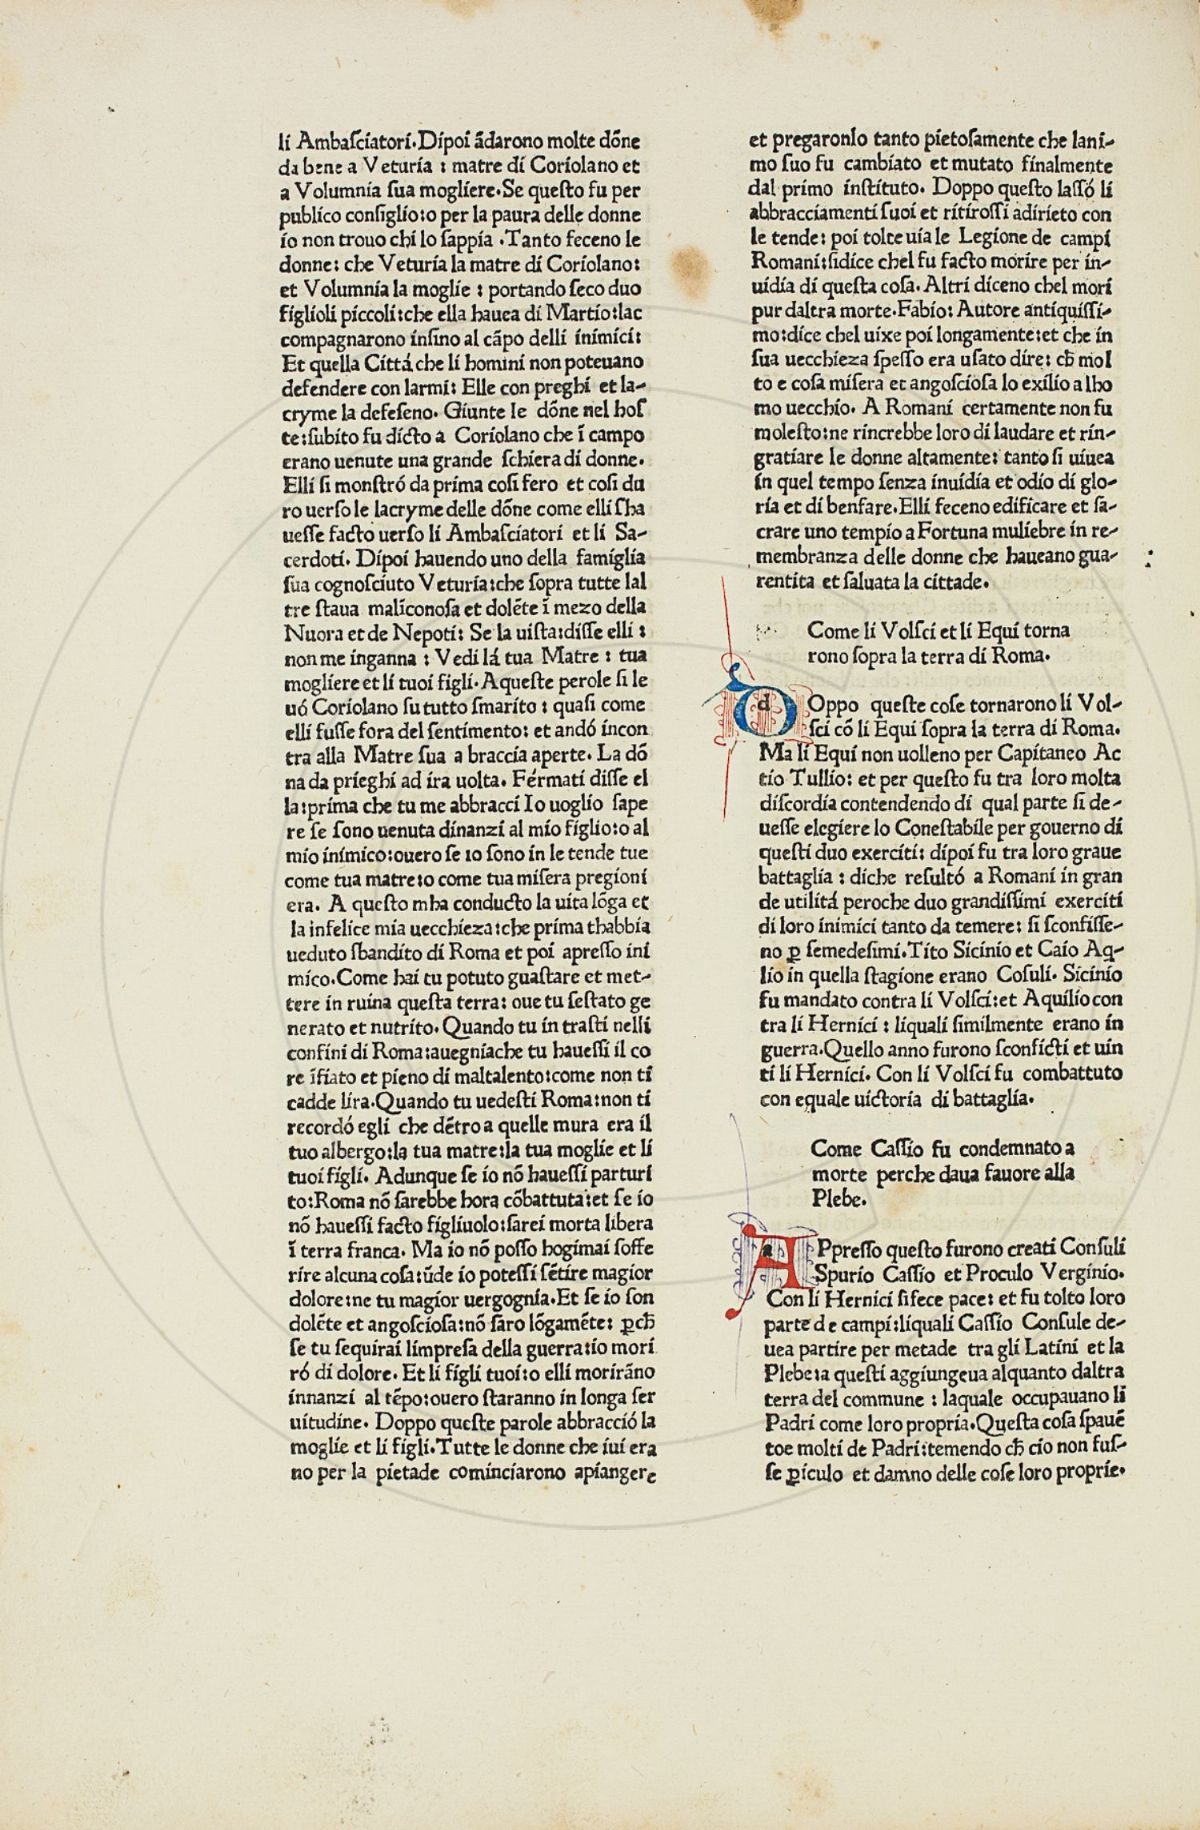 li Ambaſciatori.Dipoi ādarono molte dōne
da bene a Veturia : matre di Coriolano et
a Volumnia ſua mogliere.Se queſto fu per
publico conſiglio:o per la paura delle donne
io non trouo chi lo ſappia .Tanto feceno le
donne: che Veturia la matre di Coriolano:
et Volumnia la moglie : portando ſeco duo
figlioli piccoli:che ella hauea di Martio:lac
compagnarono inſino al cāpo delli inimici:
Et quella Cittá che li homini non poteuano
defendere con larmi: Elle con preghi et la-
cryme la defeſeno. Giunte le dōne nel hoſ
te:ſubito fu dicto a Coriolano che ī campo
erano uenute una grande ſchiera di donne.
Elli ſi monſtró da prima coſi fero et coſi du
ro uerſo le lacryme delle dōne come elli ſha
ueſſe facto uerſo li Ambaſciatori et li Sa-
cerdoti. Dipoi hauendo uno della famiglia
ſua cognoſciuto Veturia:che ſopra tutte lal
tre ſtaua maliconoſa et dolēte ī mezo della
Nuora et de Nepoti: Se la uiſta:diſſe elli :
non me inganna : Vedi lá tua Matre : tua
mogliere et li tuoi figli. A queſte perole ſi le
uó Coriolano ſu tutto ſmarito : quaſi come
elli fuſſe fora del ſentimento: et andó incon
tra alla Matre ſua a braccia aperte. La dō
na da prieghi ad ira uolta. Fermati diſſe el
la:prima che tu me abbracci Io uoglio ſape
re ſe ſono uenuta dinanzi al mio figlio:o al
mio inimico:ouero ſe io ſono in le tende tue
come tua matre:o come tua miſera pregioni
era. A queſto mha conducto la uita lōga et
la infelice mia uecchieza:che prima thabbia
ueduto ſbandito di Roma et poi apreſſo ini
mico.Come hai tu potuto guaſtare et met-
tere in ruina queſta terra: oue tu ſeſtato ge
nerato et nutrito. Quando tu in traſti nelli
confini di Roma:auegniache tu haueſſi il co
re īfiato et pieno di maltalento:come non ti
cadde lira.Quando tu uedeſti Roma:non ti
recordó egli che dētro a quelle mura era il
tuo albergo:la tua matre:la tua moglie et li
tuoi figli. Adunque ſe io nō haueſſi parturi
to:Roma nō ſarebbe hora cōbattuta:et ſe io
nō haueſſi facto figliuolo:ſarei morta libera
ī terra franca. Ma io nō poſſo hogimai ſoffe
rire alcuna coſa:ūde io poteſſi ſētire magior
dolore:ne tu magior uergognia.Et ſe io ſon
dolēte et angoſcioſa:nō ſaro lōgamēte: ꝑch̄
ſe tu ſequirai limpreſa della guerra:io mori
ró di dolore. Et li figli tuoi:o elli morirāno
innanzi al tēpo:ouero ſtaranno in longa ſer
uitudine. Doppo queſte parole abbracció la
moglie et li figli.Tutte le donne che iui era
no per la pietade cominciarono apiangere
et pregaronlo tanto pietoſamente che lani-
mo ſuo fu cambiato et mutato finalmente
dal primo inſtituto. Doppo queſto laſſó li
abbracciamenti ſuoi et ritiroſſi adirieto con
le tende: poi tolte uia le Legione de campi
Romani:ſidice chel fu facto morire per in-
uidia di queſta coſa. Altri diceno chel mori
pur daltra morte.Fabio: Autore antiquiſſi-
mo:dice chel uixe poi longamente:et che in
ſua uecchieza ſpeſſo era uſato dire: ch̄ mol
to e coſa miſera et angoſcioſa lo exilio a lho
mo uecchio. A Romani certamente non fu
moleſto:ne rincrebbe loro di laudare et rin-
gratiare le donne altamente: tanto ſi uiuea
in quel tempo ſenza inuidia et odio di glo-
ria et di benfare.Elli feceno edificare et ſa-
crare uno tempio a Fortuna muliebre in re-
membranza delle donne che haueano gua-
rentita et ſaluata la cittade.
Come li Volſci et li Equi torna
rono ſopra la terra di Roma.
dOppo queſte coſe tornarono li Vol-
ſci cō li Equi ſopra la terra di Roma.
Ma li Equi non uolleno per Capitaneo Ac
tio Tullio: et per queſto fu tra loro molta
diſcordia contendendo di qual parte ſi de-
ueſſe elegiere lo Coneſtabile per gouerno di
queſti duo exerciti: dipoi fu tra loro graue
battaglia : diche reſultó a Romani in gran
de utilitá peroche duo grandiſſimi exerciti
di loro inimici tanto da temere: ſi ſconfiſſe-
no ꝑ ſemedeſimi.Tito Sicinio et Caio Aq-
lio in quella ſtagione erano Coſuli. Sicinio
fu mandato contra li Volſci:et Aquilio con
tra li Hernici : liquali ſimilmente erano in
guerra.Quello anno furono ſconficti et uin
ti li Hernici. Con li Volſci fu combattuto
con equale uictoria di battaglia.
Come Caſſio fu condemnato a
morte perche daua fauore alla
Plebe.
APpreſſo queſto furono creati Conſuli
Spurio Caſſio et Proculo Verginio.
Con li Hernici ſifece pace: et fu tolto loro
parte de campi:liquali Caſſio Conſule de-
uea partire per metade tra gli Latini et la
Plebe:a queſti aggiungeua alquanto daltra
terra del commune : laquale occupauano li
Padri come loro propria.Queſta coſa ſpauē
toe molti de Padri:temendo ch̄ cio non fuſ-
ſe ꝑiculo et damno delle coſe loro proprie.